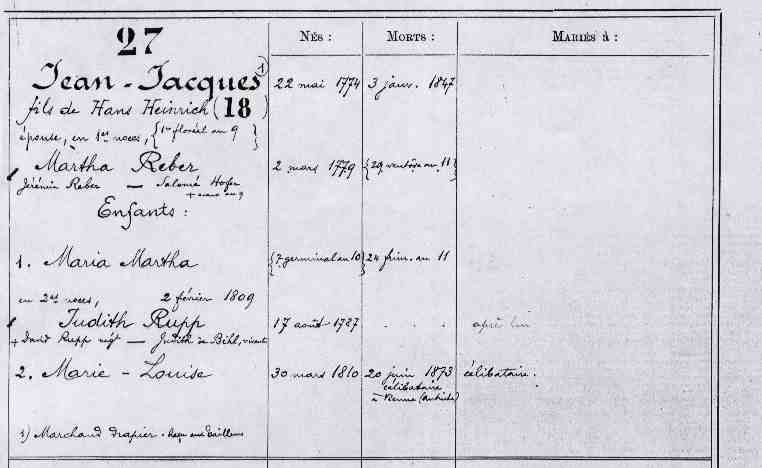 Nés : Morts : Mariés à :
27
Jean-Jacques 1) 22 mai 1774 3 janv. 1847
fils de Hans Heinrich (18)
épouse, en 1res noces, {1er floréal an 9}
Martha Reber 2 mars 1779 {29 ventôse an 11}
Jérémie Reber — Salomé Hofer
Enfants :
1. Maria Martha {7 germinal an 10} 24 frim. an 11
en 2es noces, 2 février 1809
Judith Rupp 17 août 1787 . . . après lui
+ David Rupp négt — Judith de Bihl, vivante
2. Marie-Louise 30 mars 1810 20 juin 1873 célibataire.
célibataire
à Vienne (Autriche)
1) Marchand drapier. Reçu aux Tailleurs